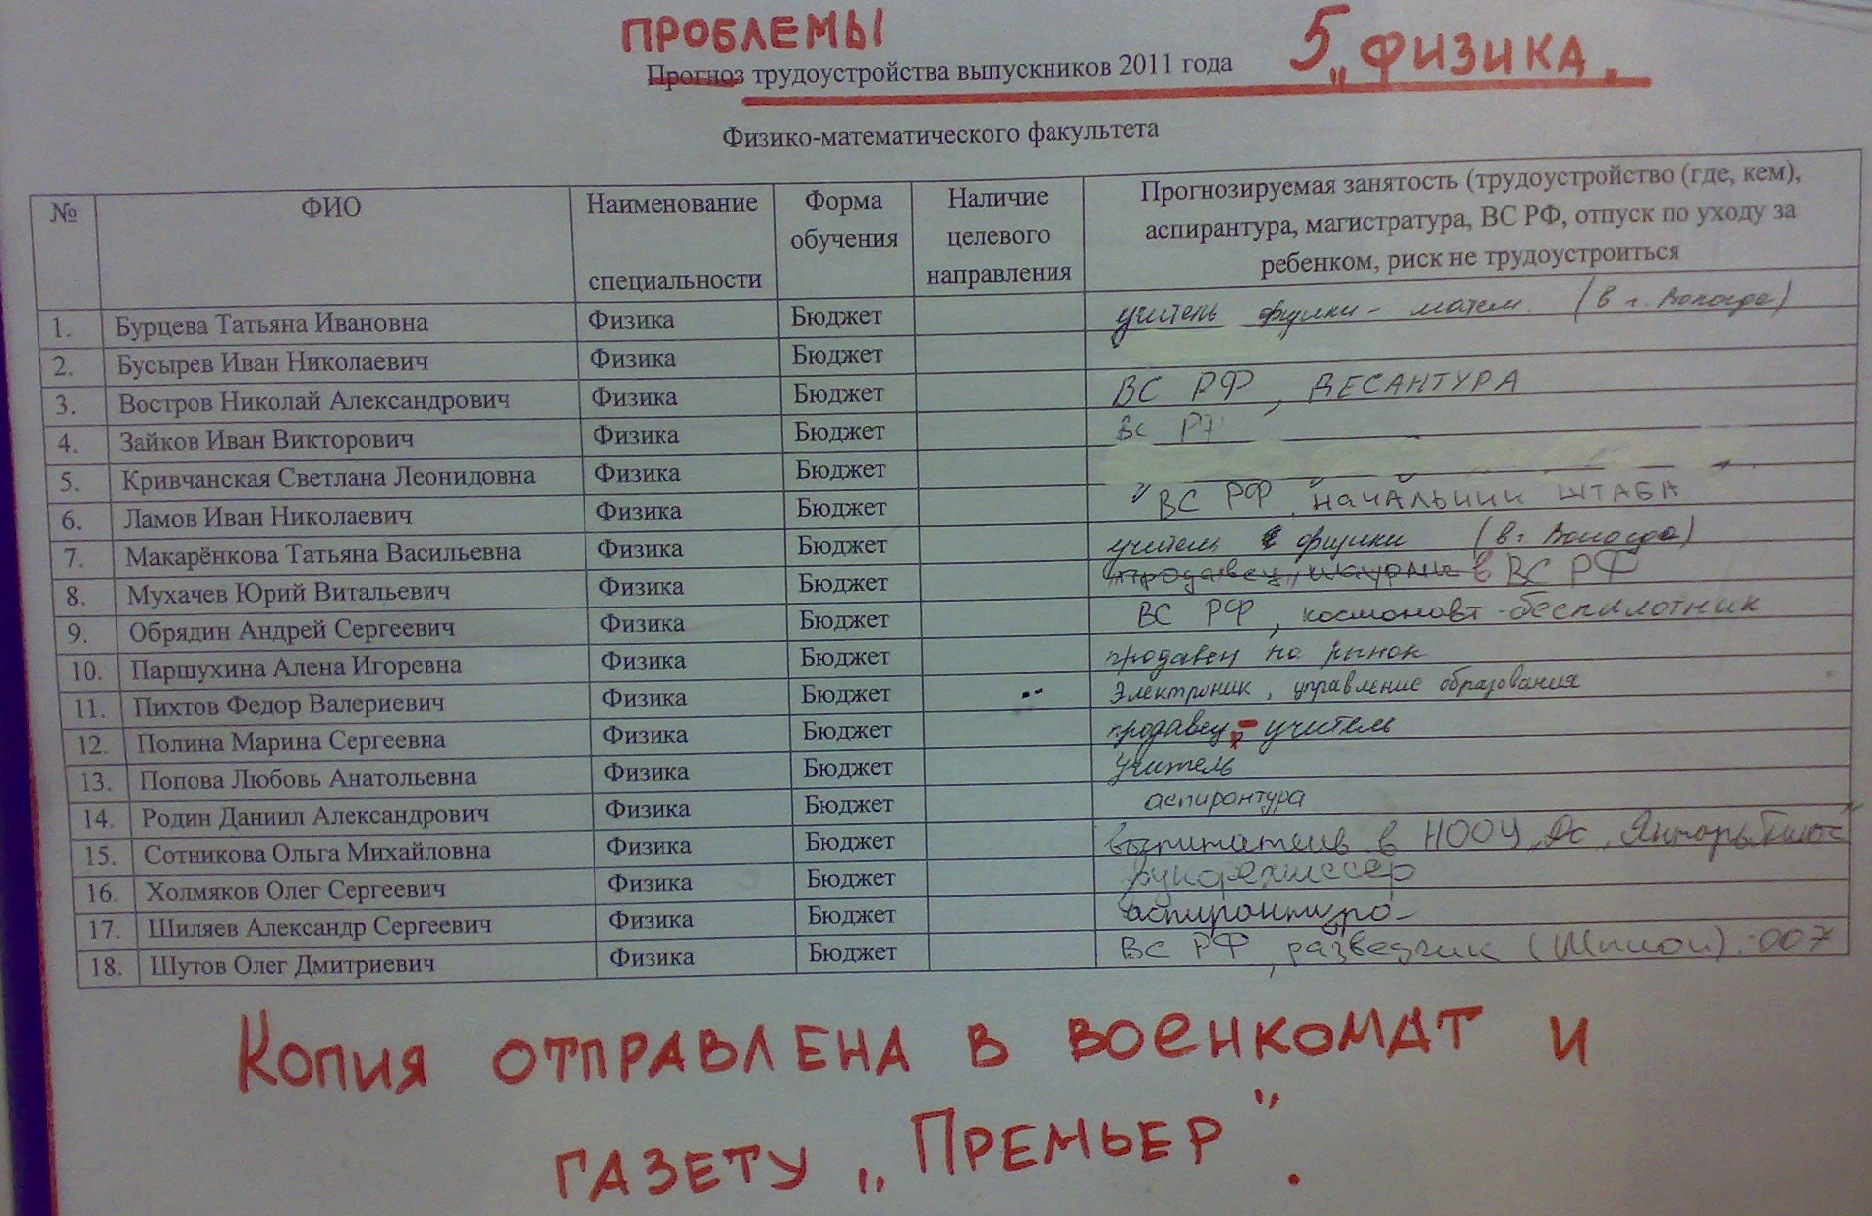 ПРОБЛЕМЫ
Прогноз трудоустройства выпускников 2011 года 5 „ФИЗИКА„
Физико-математического факультета
№ ФИО Наименование специальности Форма обучения Наличие целевого направления Прогнозируемая занятость (трудоустройство (где, кем), аспирантура, магистратура, ВС РФ, отпуск по уходу за ребенком, риск не трудоустроиться
1. Бурцева Татьяна Ивановна Физика Бюджет учитель физики - матем. (в г. Вологде)
2. Бусырев Иван Николаевич Физика Бюджет
3. Востров Николай Александрович Физика Бюджет ВС РФ, ДЕСАНТУРА
4. Зайков Иван Викторович Физика Бюджет ВС РФ
5. Кривчанская Светлана Леонидовна Физика Бюджет
6. Ламов Иван Николаевич Физика Бюджет ВС РФ, НАЧАЛЬНИК ШТАБА
7. Макарёнкова Татьяна Васильевна Физика Бюджет учитель физики (в г. Вологде)
8. Мухачев Юрий Витальевич Физика Бюджет продавец шаурмы в ВС РФ
9. Обрядин Андрей Сергеевич Физика Бюджет ВС РФ, космонавт-беспилотник
10. Паршухина Алена Игоревна Физика Бюджет продавец на рынок
11. Пихтов Федор Валериевич Физика Бюджет Электроник, управление образования
12. Полина Марина Сергеевна Физика Бюджет продавец - учитель
13. Попова Любовь Анатольевна Физика Бюджет Учитель
14. Родин Даниил Александрович Физика Бюджет аспирантура
15. Сотникова Ольга Михайловна Физика Бюджет в НООУ
16. Холмяков Олег Сергеевич Физика Бюджет
17. Шиляев Александр Сергеевич Физика Бюджет аспирантура
18. Шутов Олег Дмитриевич Физика Бюджет ВС РФ, разведчик (Шпион):007
Копия ОТПРАВЛЕНА В ВОЕНКОМАТ И
ГАЗЕТУ „ПРЕМЬЕР".